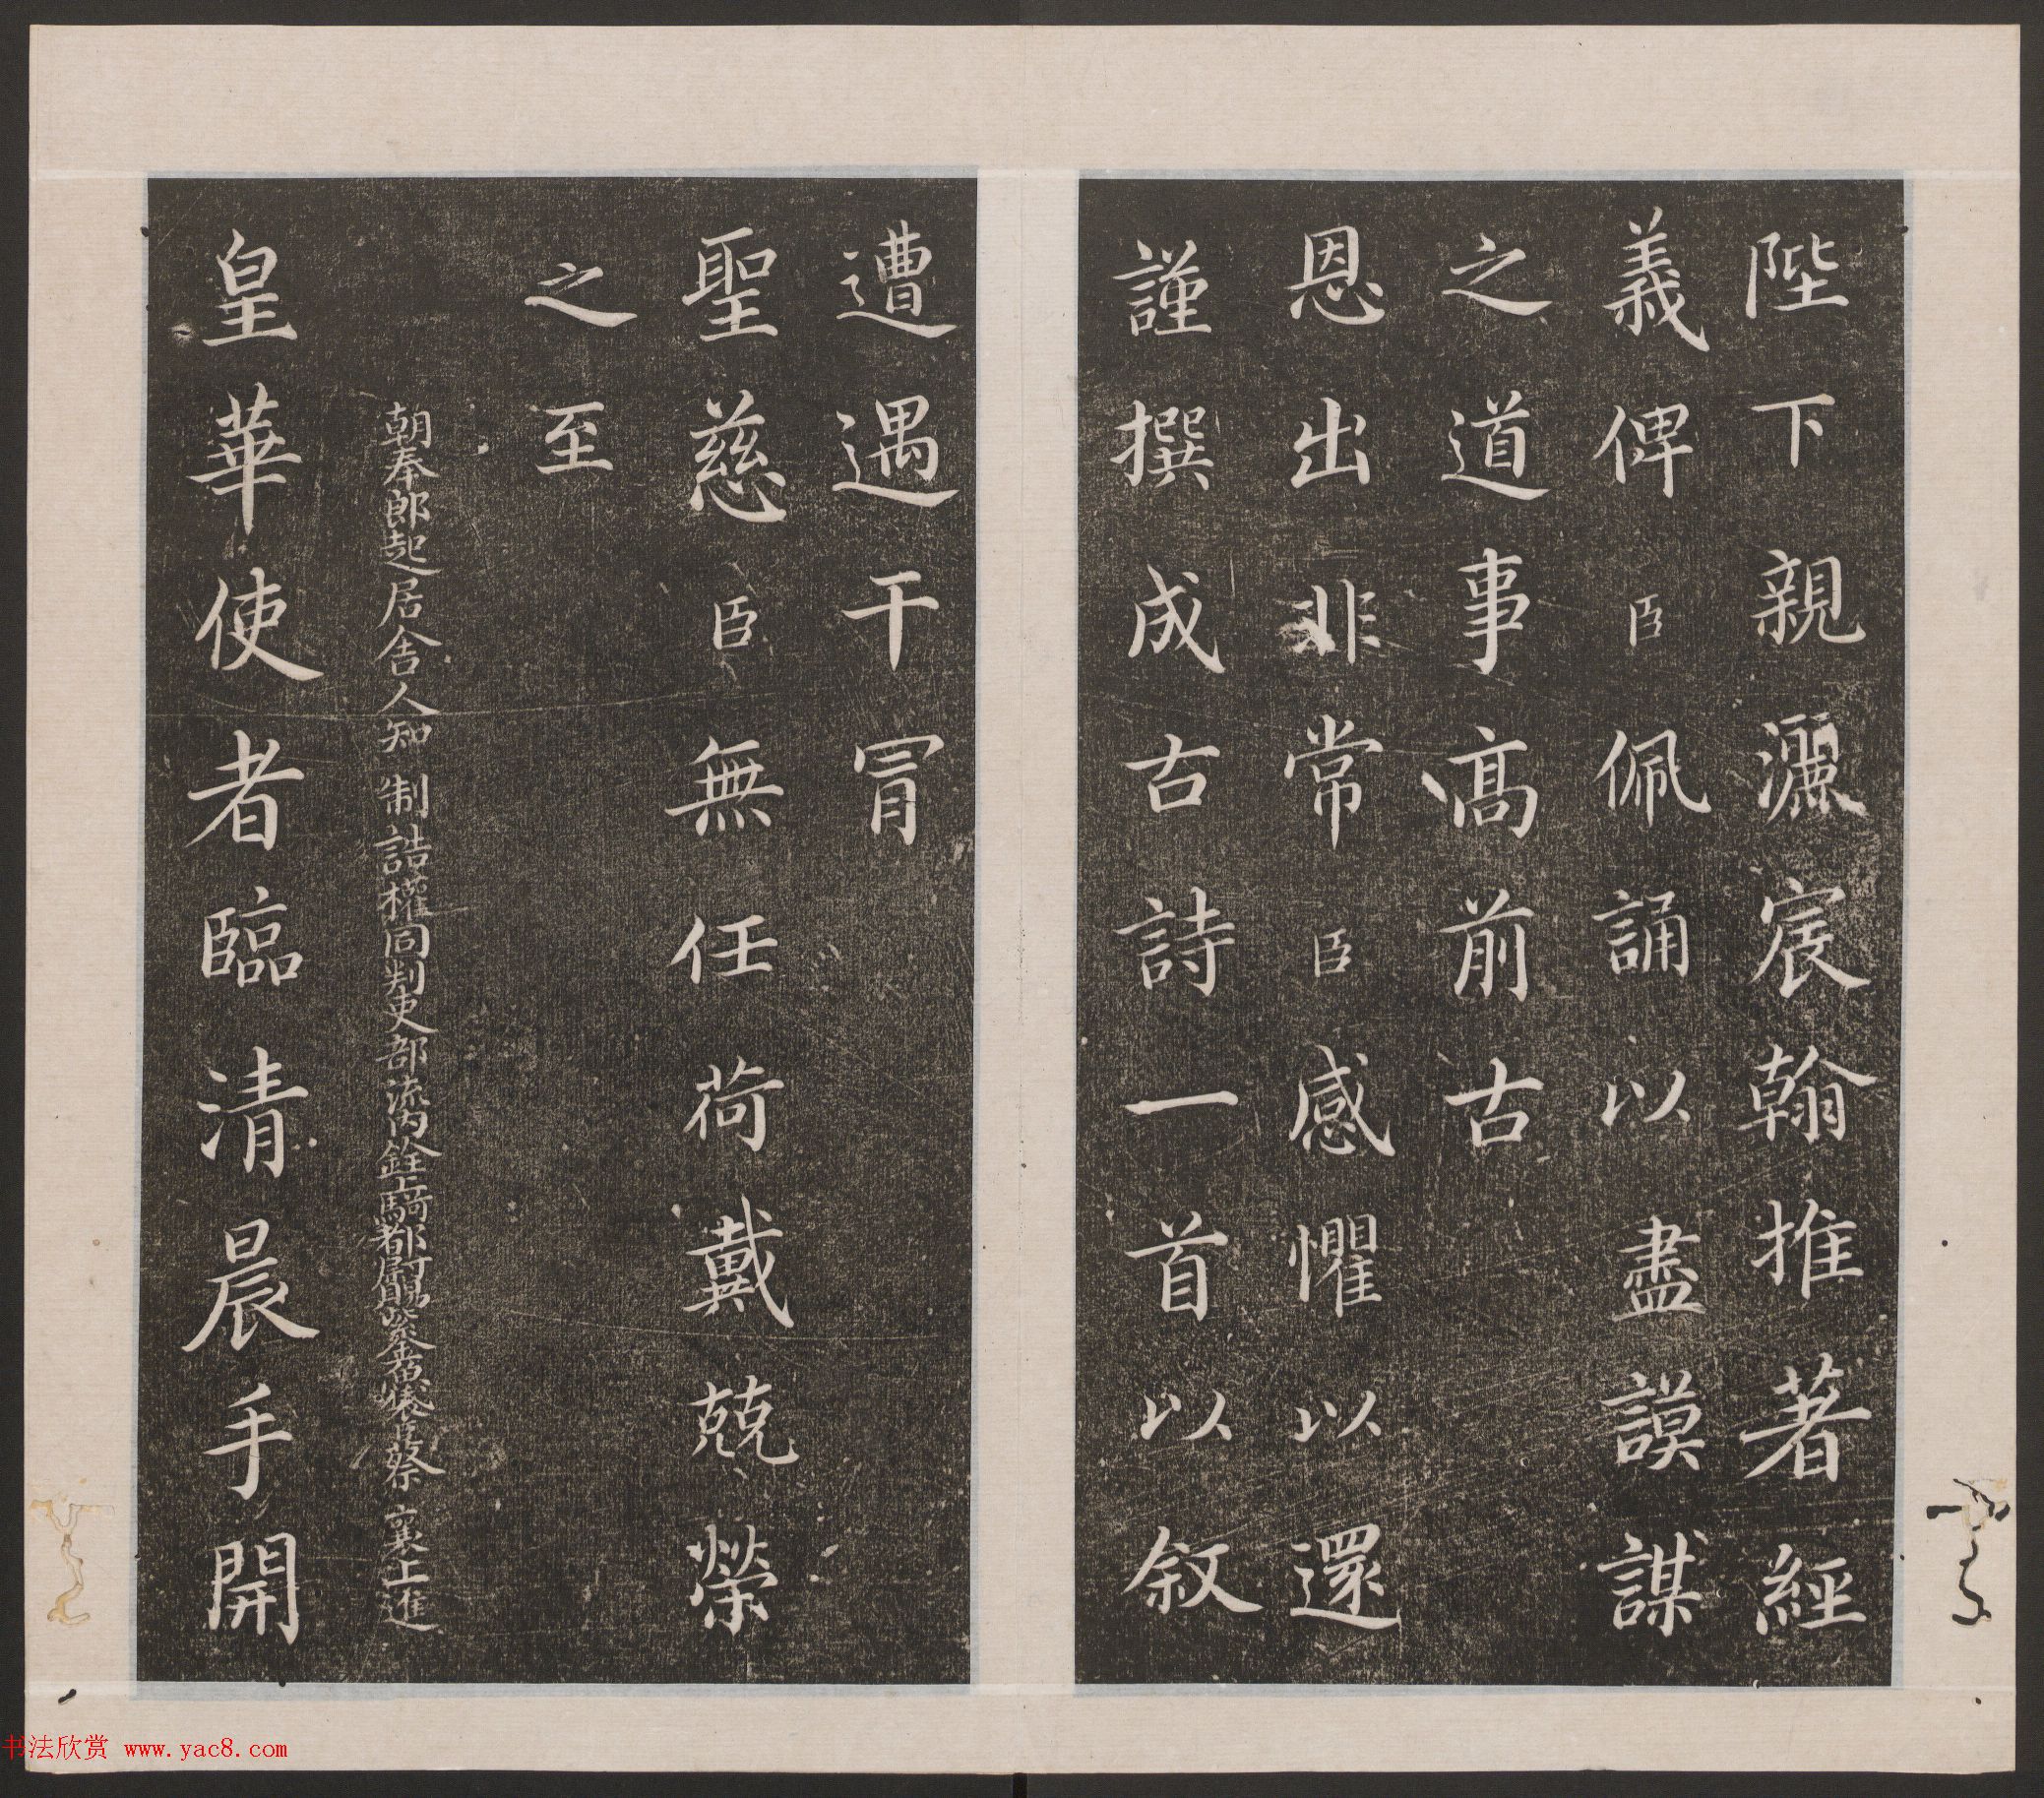 陛下親灑宸翰推著經
義俾臣佩誦以盡謨謀
之道事高前古
恩出非常臣感懼以還
謹撰成古詩一首以叙
遭遇干冒
聖慈臣無任荷戴兢榮
之至
朝奉郎起居舍人知制誥權同判吏部流內銓上騎都尉賜紫金魚袋臣蔡襄上進
皇華使者臨清晨手開
书法欣赏 www.yac8.com